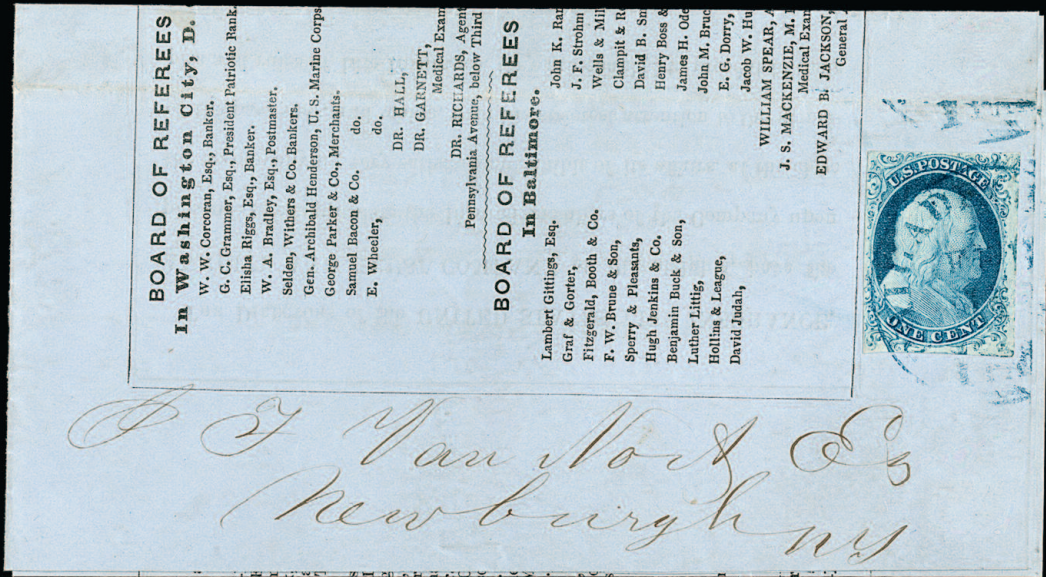 BOARD OF REFEREES
In Washington City, D.
W. W. Corcoran, Esq., Banker.
G. C. Grammer, Esq., President Patriotic Bank.
Elisha Riggs, Esq., Banker.
W. A. Bradley, Esq., Postmaster.
Selden, Withers & Co. Bankers.
Gen. Archibald Henderson, U. S. Marine Corps.
George Parker & Co., Merchants.
Samuel Bacon & Co. do.
E. Wheeler, do.
DR. HALL,
DR. GARNET,
Medical Exam
DR. RICHARDS, Agent
Pennsylvania Avenue, below Third
BOARD OF REFEREES
In Baltimore.
Lambert Gittings, Esq.
Graf & Gorter,
Fitzgerald, Booth & Co.
F. W. Brune & Son,
Sperry & Pleasants,
Hugh Jenkins & Co.
Benjamin Buck & Son,
Luther Littig,
Hollins & League,
David Judah,
John K. Ran
J. F. Strohm
Wells & Mil
Clampit & Re
David B. Sm
Henry Boss &
James H. Ode
John M. Bruc
E. G. Dorry,
Jacob W. Hu
WILLIAM SPEAR, A
J. S. MACKENZIE, M. I
Medical Exam
EDWARD B. JACKSON,
General
U.S. POSTAGE
ONE CENT
Van Nort Es
Newburgh
NY